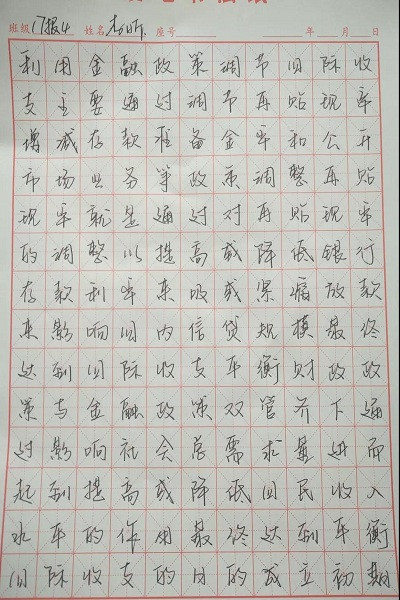 班级 17报4 姓名 李昕 座号 年 月 日
利用金融政策调节国际收
支主要通过调节再贴现率
增减存款准备金率和公开
市场业务等政策调整再贴
现率就是通过对再贴现率
的调整以提高或降低银行
存款利率来吸或紧缩放款
来影响国内信贷规模最终
达到国际收支平衡财政政
策与金融政策双管齐下通
过影响社会总需求量进而
起到提高或降低国民收入
水平的作用最终达到平衡
国际收支的目的成立初期